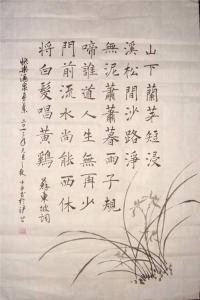 山下蘭芽短浸
溪松間沙路淨
無泥蕭蕭暮雨子規
啼誰道人生無再少
門前流水尚能西休
將白髮唱黃鷄 蘇東坡詞